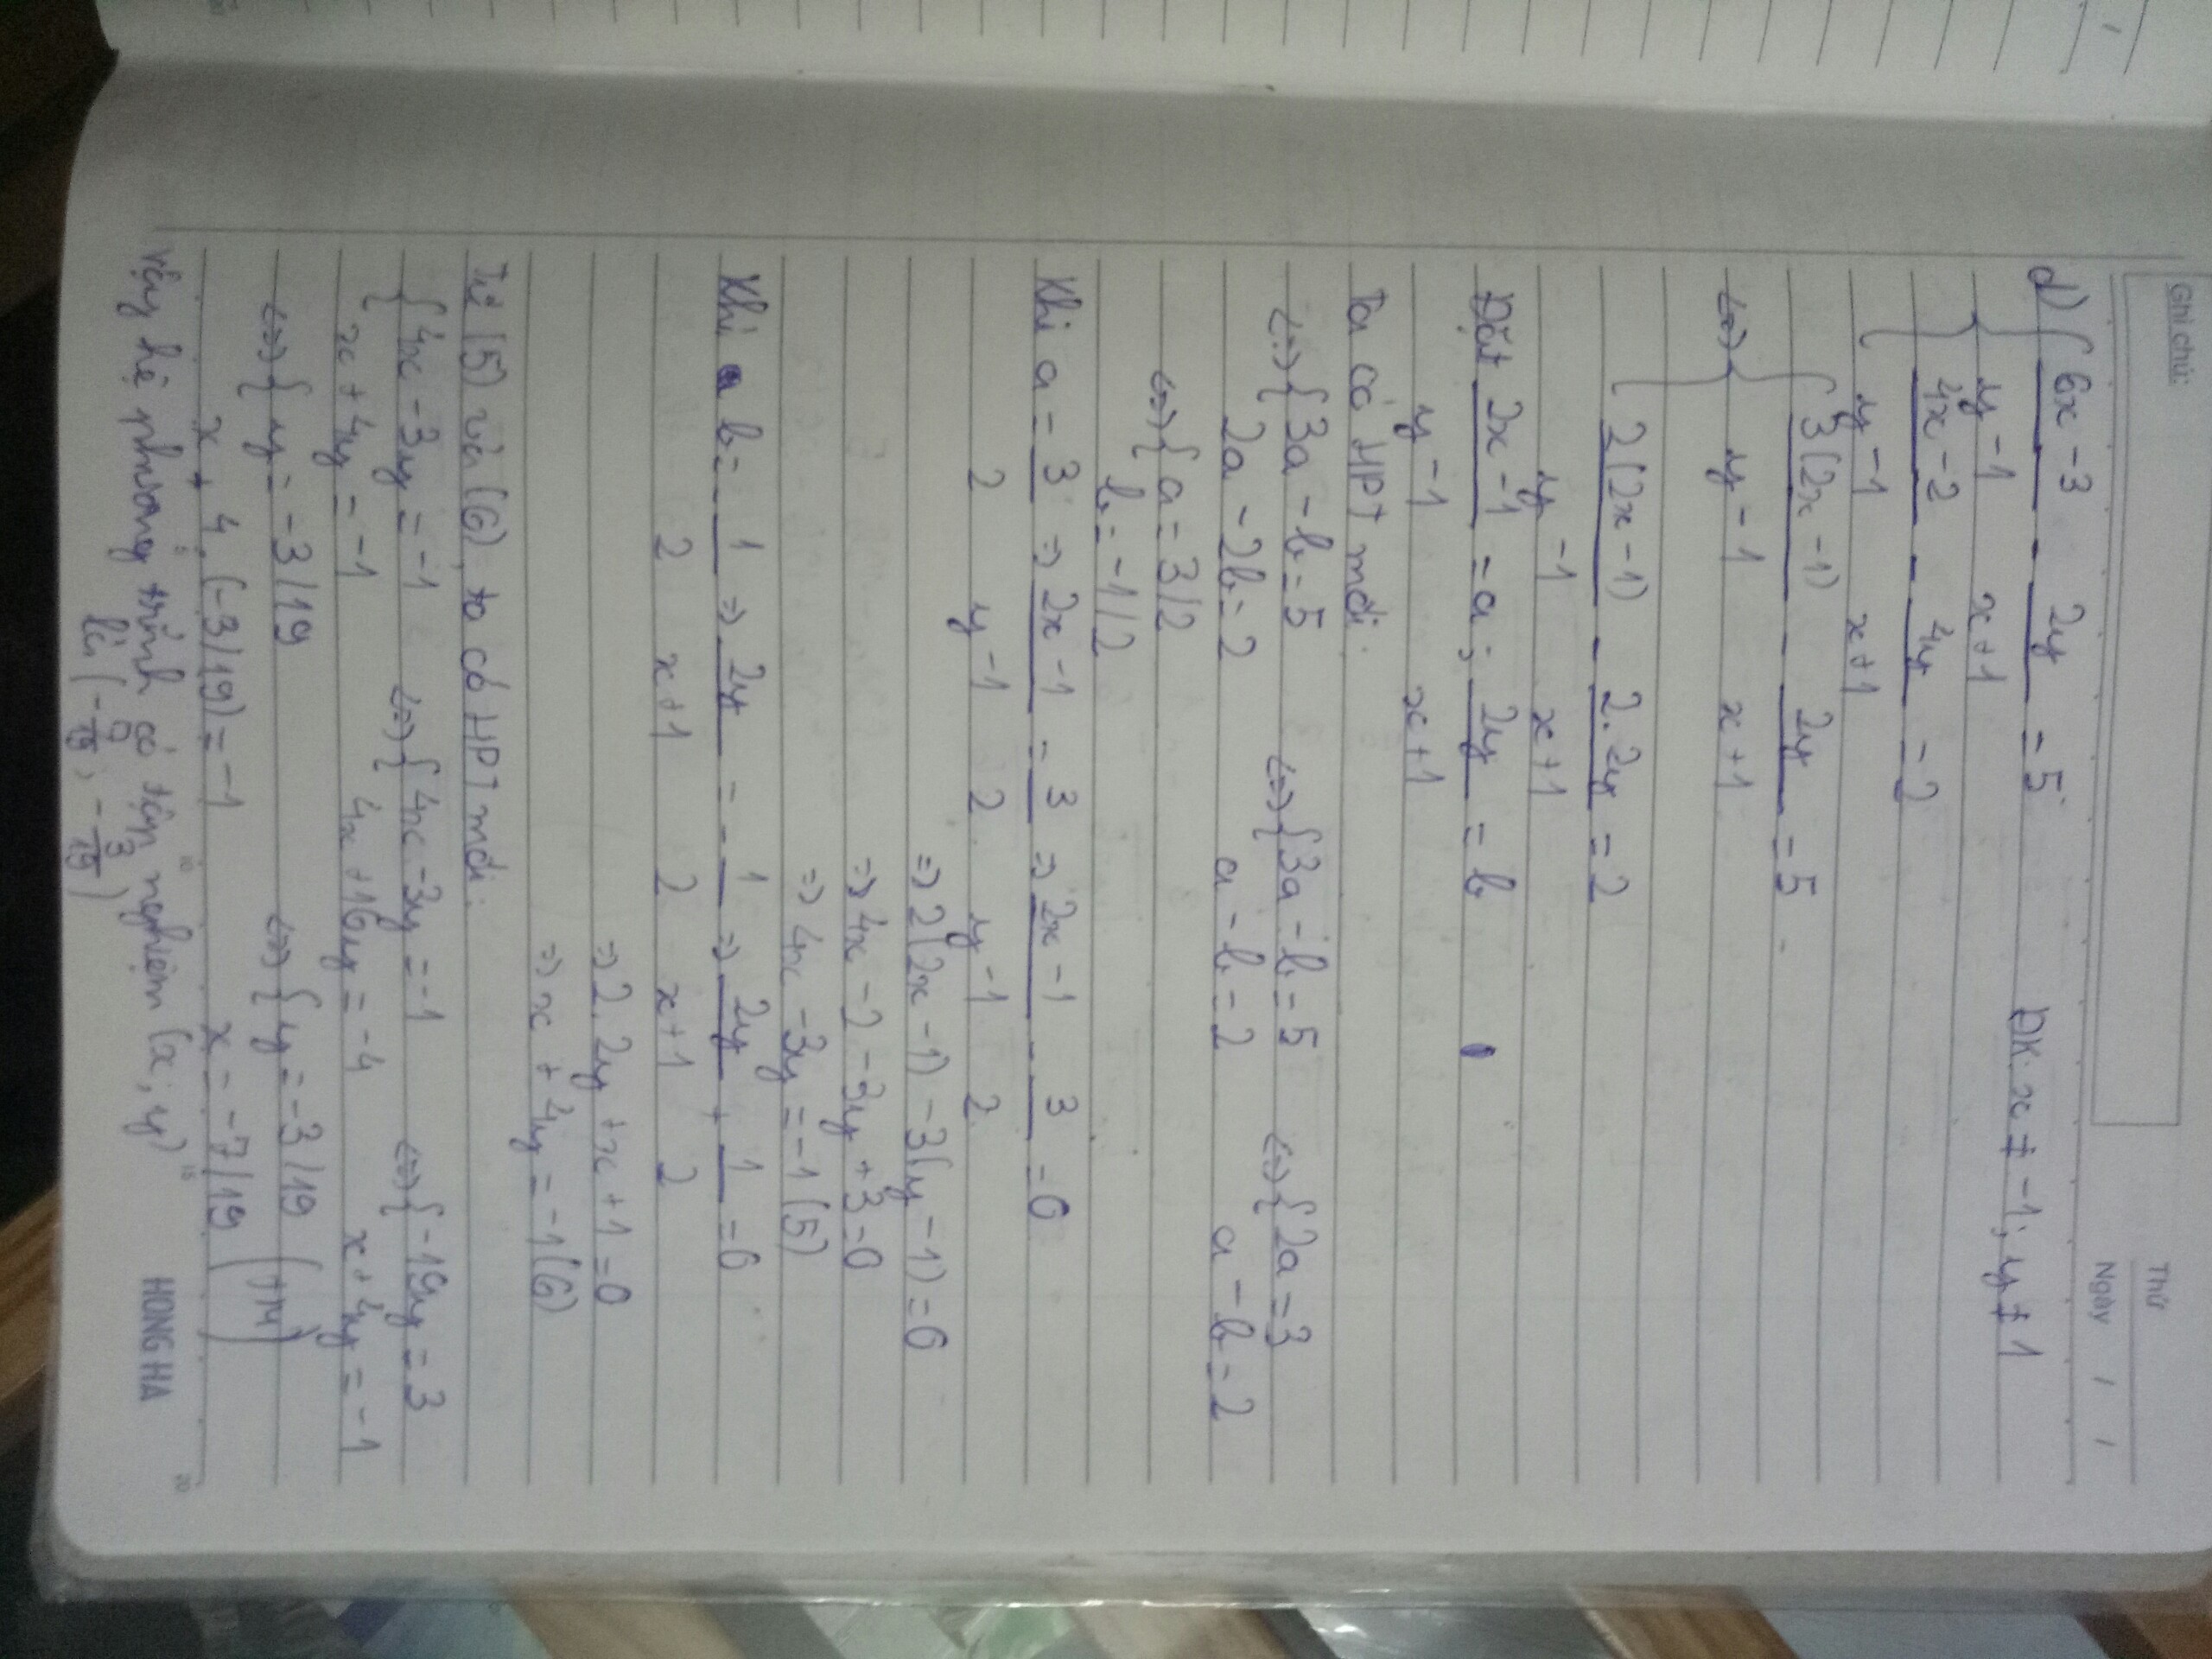 Ghi chú:
Thứ
Ngày / /
d) { 6x - 3 / y - 1 - 2y / x + 1 = 5 ĐK: x ≠ -1; y ≠ 1
4x - 2 / y - 1 - 4y / x + 1 = 2
<=> { 3(2x - 1) / y - 1 - 2y / x + 1 = 5
2(2x - 1) / y - 1 - 2.2y / x + 1 = 2
Đặt 2x - 1 / y - 1 = a ; 2y / x + 1 = b
Ta có HPT mới:
<=> { 3a - b = 5 <=> { 3a - b = 5 <=> { 2a = 3
2a - 2b = 2 a - b = 2 a - b = 2
<=> { a = 3/2
b = -1/2
Khi a = 3/2 => 2x - 1 / y - 1 = 3/2 => 2x - 1 / y - 1 - 3/2 = 0
=> 2(2x - 1) - 3(y - 1) = 0
=> 4x - 2 - 3y + 3 = 0
=> 4x - 3y = -1 (5)
Khi b = - 1/2 => 2y / x + 1 = - 1/2 => 2y / x + 1 + 1/2 = 0
=> 2.2y + x + 1 = 0
=> x + 4y = -1 (6)
Từ (5) và (6), ta có HPT mới:
{ 4x - 3y = -1 <=> { 4x - 3y = -1 <=> { -19y = 3
x + 4y = -1 4x + 16y = -4 x + 4y = -1
<=> { y = -3/19 <=> { y = -3/19 (TM)
x + 4.(-3/19) = -1 x = -7/19
Vậy hệ phương trình có tập nghiệm (x; y)
là (-7/19; -3/19)
HONG HA